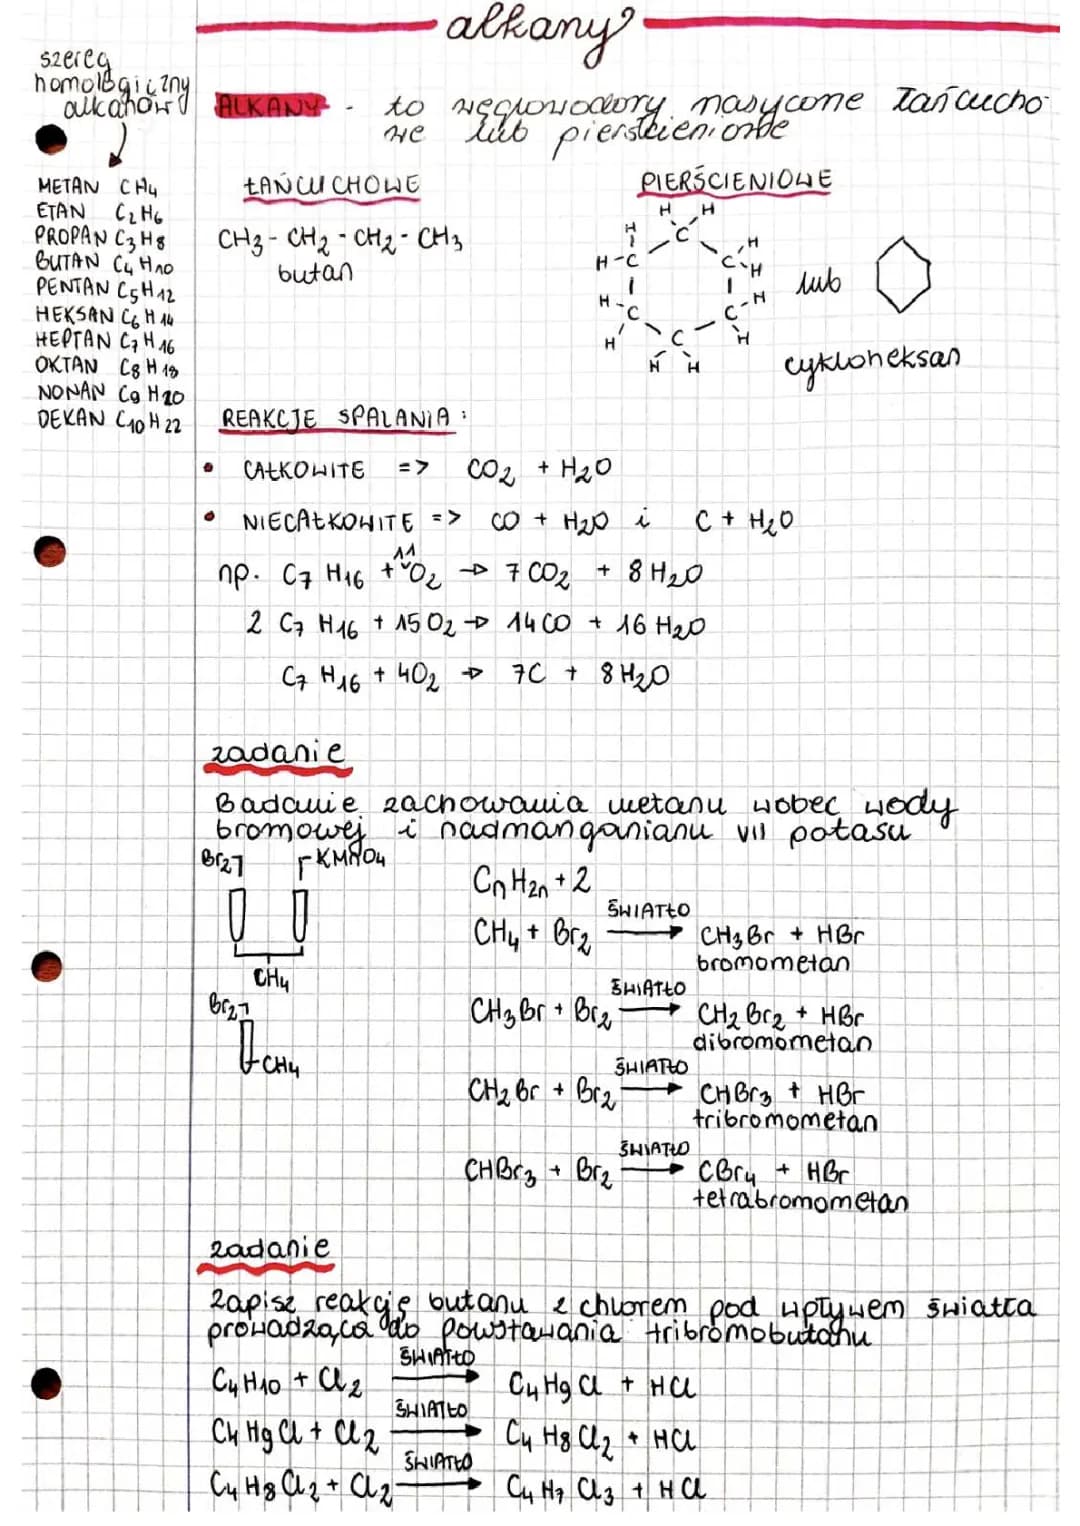 alkany
szereg
homologiczny
alkanów
METAN CH4
ETAN C2H6
PROPAN C3H8
BUTAN C4H10
PENTAN C5H12
HEKSAN C6H14
HEPTAN C7H16
OKTAN C8H18
NONAN C9H20
DEKAN C10H22
ALKANY - to węglowodory nasycone łańcucho
we lub pierścieniowe
ŁAŃCUCHOWE
CH3 - CH2 - CH2 - CH3
butan
PIERŚCIENIOWE
H H
C
H H
H-C C-H
H-C C-H
H H
C
H H
lub
cykloheksan
REAKCJE SPALANIA:
• CAŁKOWITE => CO2 + H2O
• NIECAŁKOWITE => CO + H2O i C + H2O
np. C7H16 + 11 O2 → 7 CO2 + 8 H2O
2 C7H16 + 15 O2 → 14 CO + 16 H2O
C7H16 + 4O2 → 7C + 8 H2O
zadanie
Badanie zachowania metanu wobec wody
bromowej i nadmanganianu VII potasu
Br2 KMNO4
CH4
Br2
CH4
CnH2n+2
ŚWIATŁO
CH4 + Br2 → CH3Br + HBr
bromometan
ŚWIATŁO
CH3Br + Br2 → CH2Br2 + HBr
dibromometan
ŚWIATŁO
CH2Br + Br2 → CHBr3 + HBr
tribromometan
ŚWIATŁO
CHBr3 + Br2 → CBr4 + HBr
tetrabromometan
zadanie
Zapisz reakcję butanu z chlorem pod wpływem światła
prowadzącą do powstawania tribromobutanu
ŚWIATŁO
C4H10 + Cl2 → C4H9Cl + HCl
ŚWIATŁO
C4H9Cl + Cl2 → C4H8Cl2 + HCl
ŚWIATŁO
C4H8Cl2 + Cl2 → C4H7Cl3 + HCl